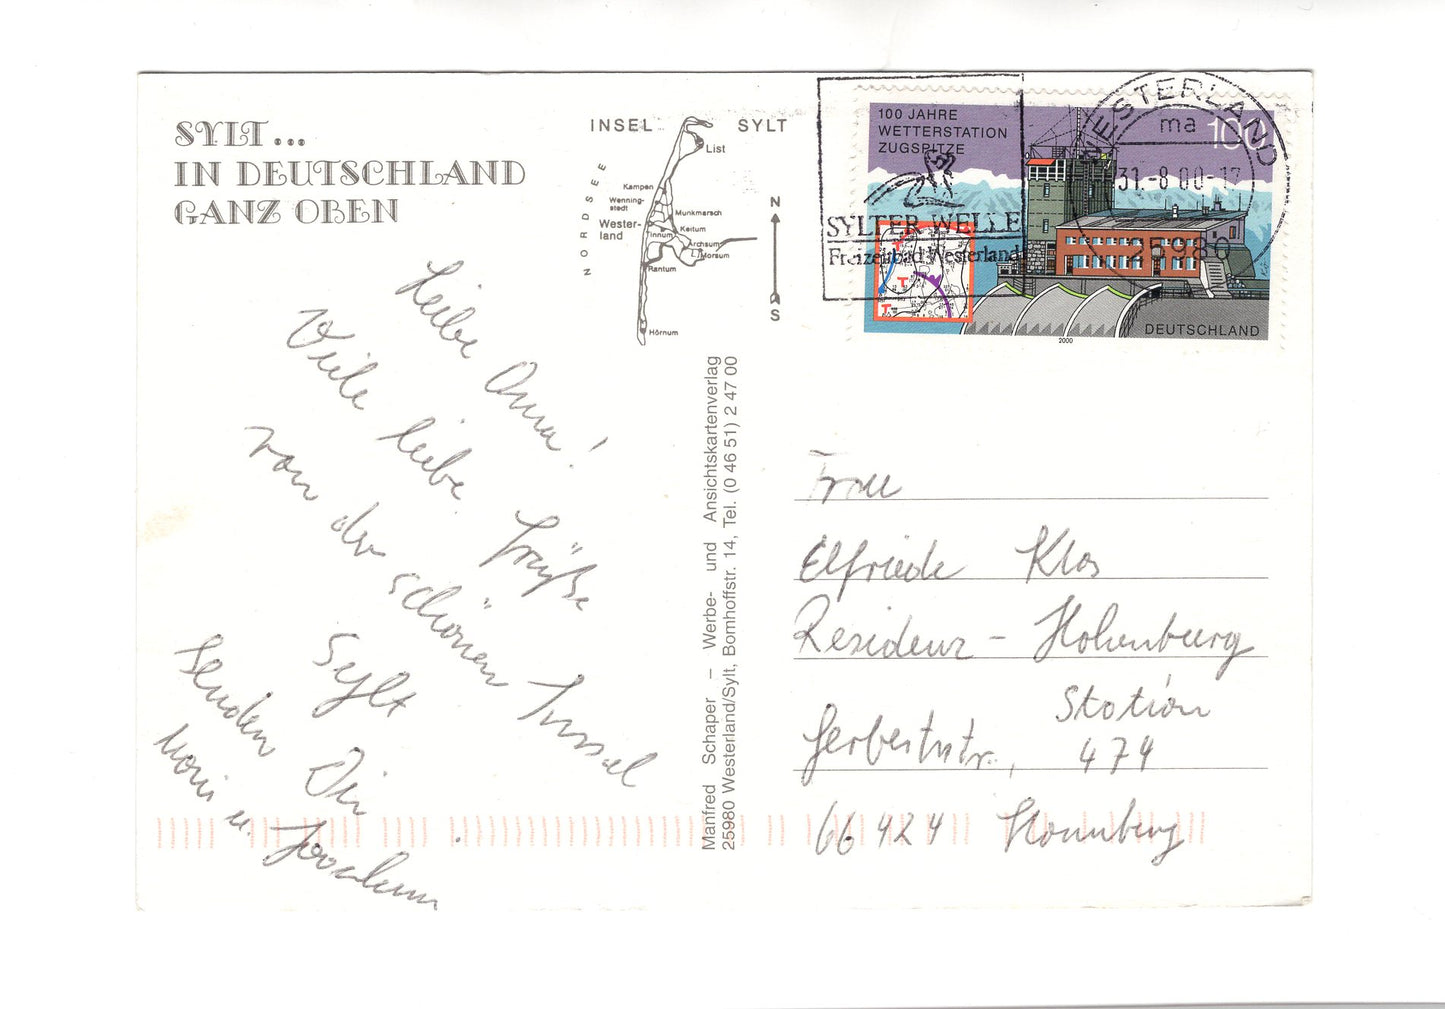 SYLT...
IN DEUTSCHLAND
GANZ OBEN
INSEL SYLT
NORDSEE
List
Kampen
Wenning-
stedt
Munkmarsch
Wester-
land
Keitum
Tinnum
Archsum
Morsum
Rantum
Hörnum
N
S
100 JAHRE
WETTERSTATION
ZUGSPITZE
100
DEUTSCHLAND
2000
SYLTER WELLE
Freizeitbad Westerland
WESTERLAND
ma
31.-8.00-17
25980
Liebe Oma!
Viele liebe Grüße
von der schönen Insel
Sylt
senden Dir
u.
Manfred Schaper – Werbe- und Ansichtskartenverlag
25980 Westerland/Sylt, Bomhoffstr. 14, Tel. (0 46 51) 2 47 00
Frau
Elfriede Klos
Residenz - Hohenburg
Station
474
66424 Homburg